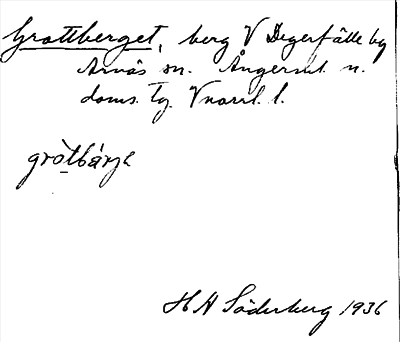 Grottberget, berg V Degerfälle by
Arnäs sn. Ångerml. n.
doms. tg. Vnorrl. l.
grò̱tbár̨jɛ
H A Söderberg 1936